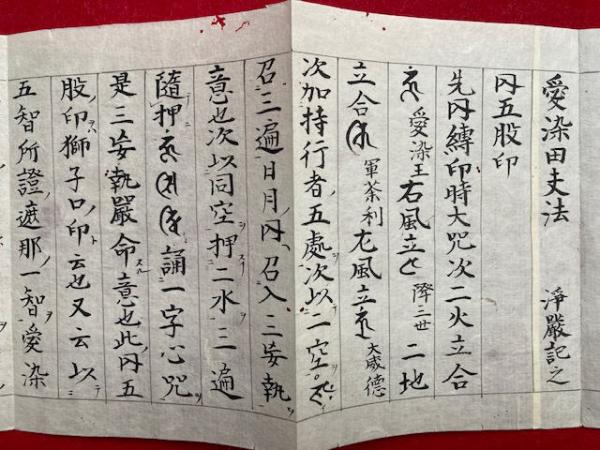 愛染田夫法　淨嚴記之
内五股印
先内縛印時大咒次二火立合
愛染王右風立降三世二地
立合軍荼利左風立大威德
次加持行者ノ五處次以二空
召三遍日月ノ内ニ召入三妄執
意也次以同空押二水三遍
隨押誦一字心咒
是三妄執嚴命スル意也此ノ内五
股印ヲ獅子口ノ印ト云也又云以テ
五智所證遮那ノ一智ヲ愛染